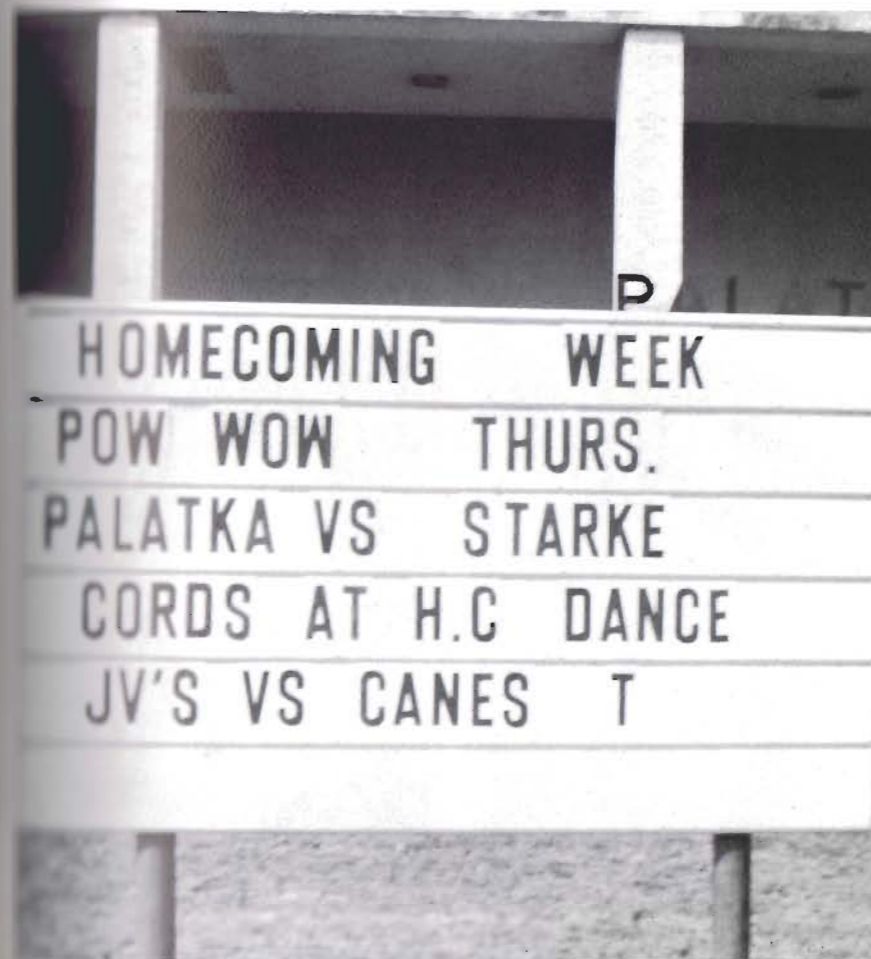 PALAT
HOMECOMING WEEK
POW WOW THURS.
PALATKA VS STARKE
CORDS AT H.C DANCE
JV'S VS CANES T